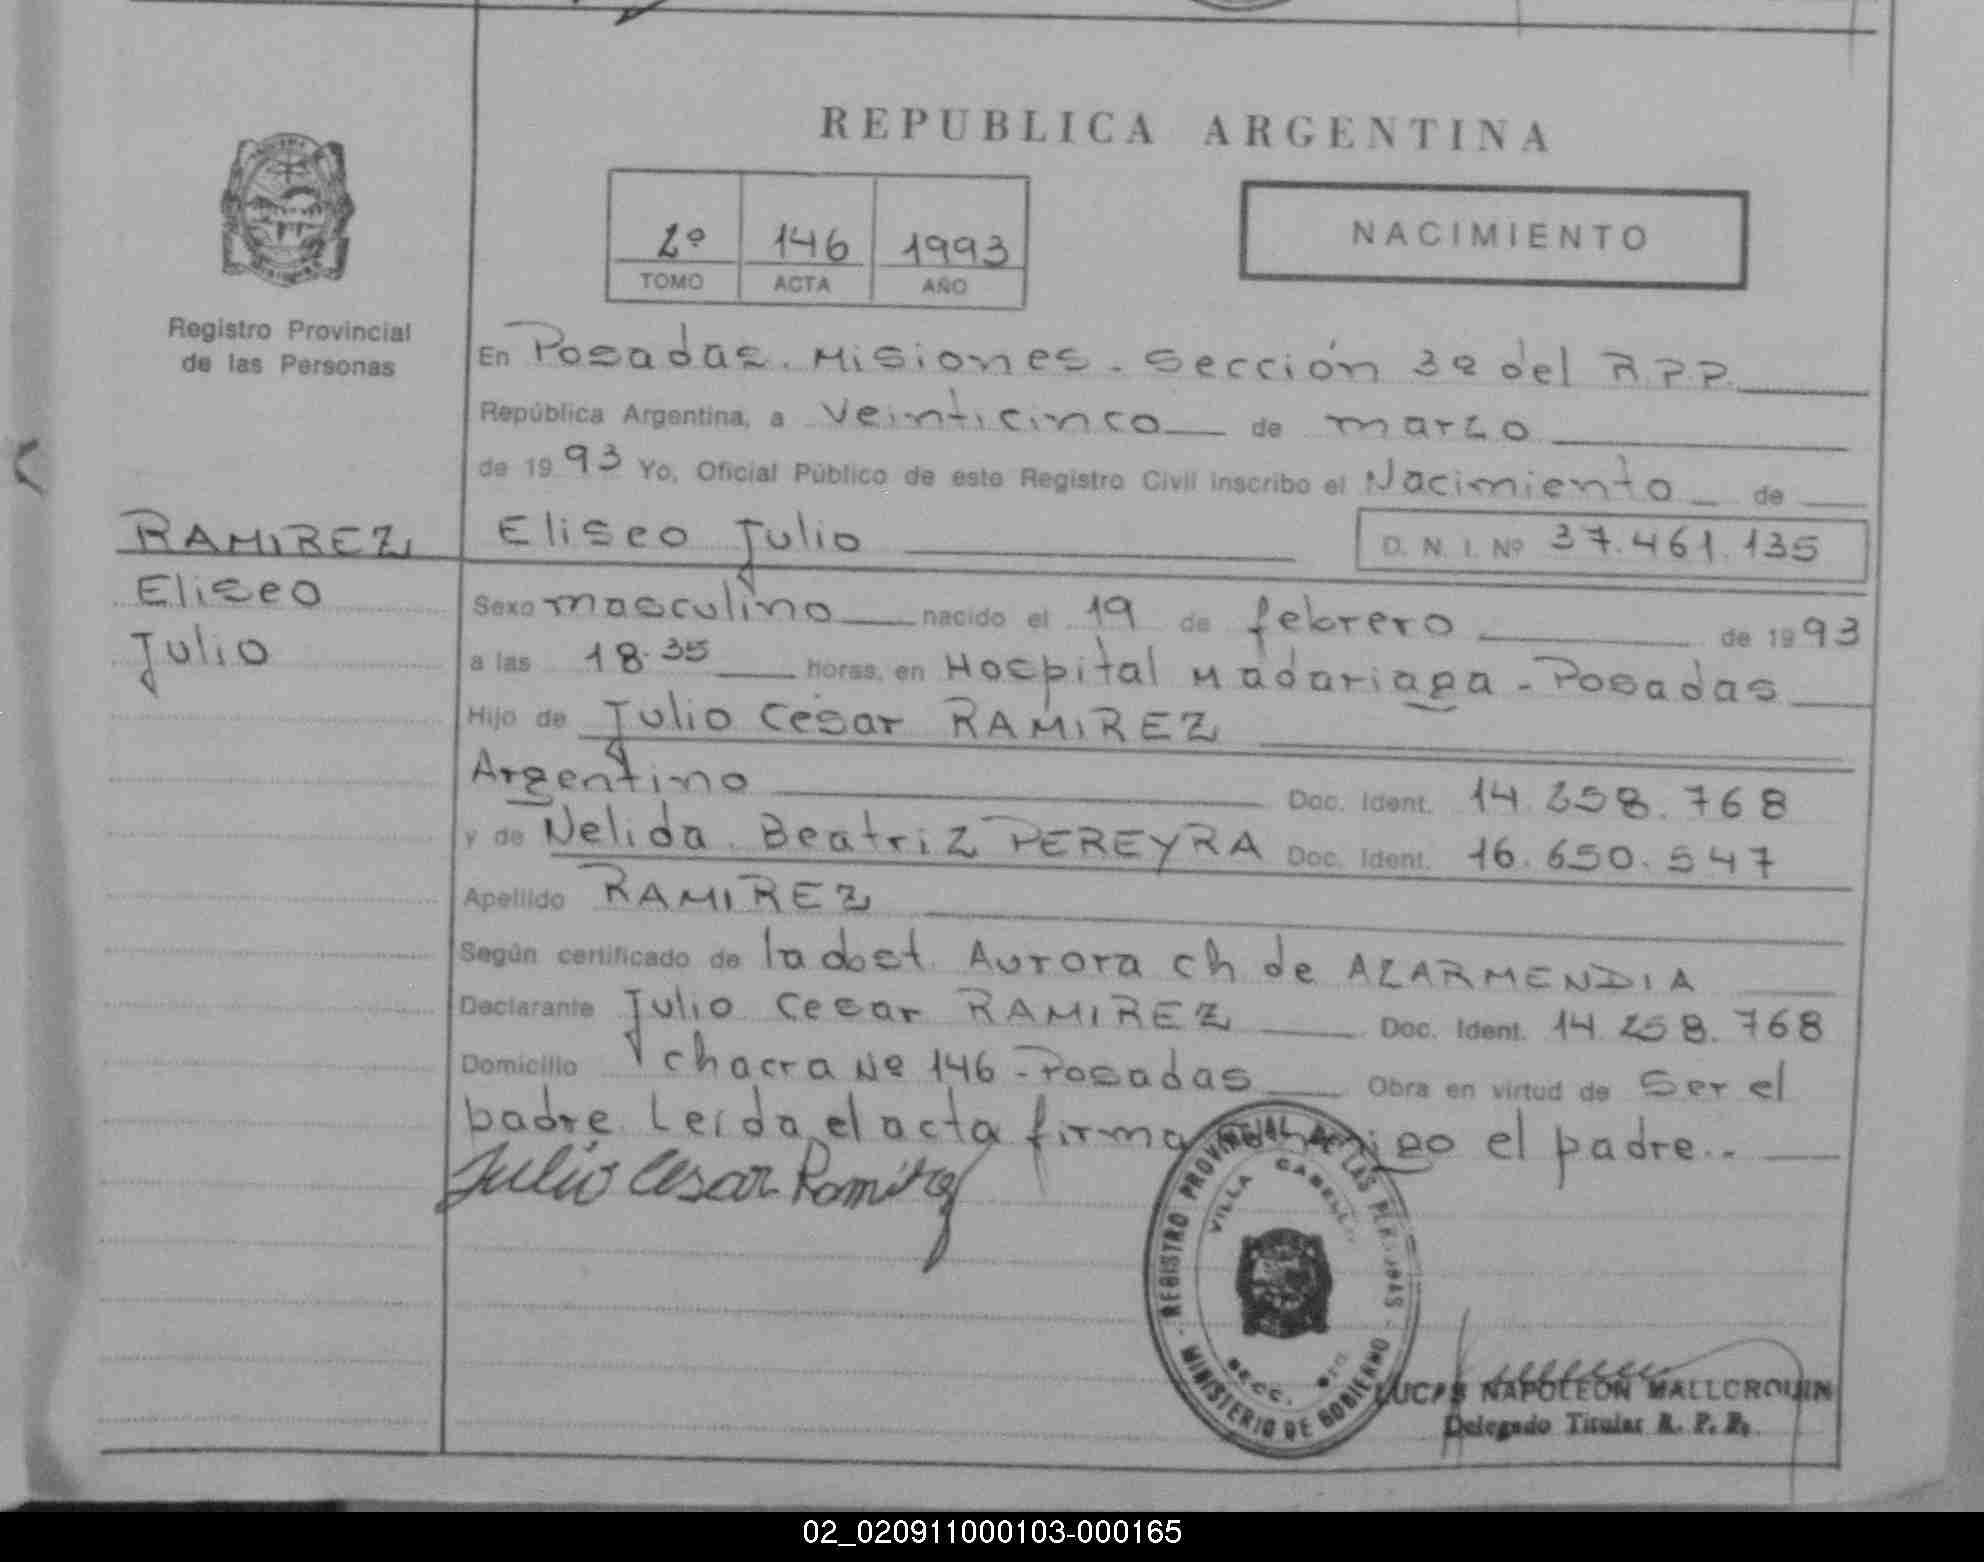 REPUBLICA ARGENTINA
2º 146 1993
TOMO ACTA AÑO
NACIMIENTO
Registro Provincial
de las Personas
En Posadas. Misiones. Sección 3º del R.P.P.
República Argentina, a veinticinco de marzo
de 1993 Yo, Oficial Público de este Registro Civil inscribo el Nacimiento de
RAMIREZ Eliseo Julio D. N. I. Nº 37.461.135
Eliseo
Julio
Sexo masculino nacido el 19 de febrero de 1993
a las 18.35 horas, en Hospital Madariaga - Posadas
Hijo de Julio Cesar RAMIREZ
Argentino Doc. Ident. 14.258.768
y de Nelida Beatriz PEREYRA Doc. Ident. 16.650.547
Apellido RAMIREZ
Según certificado de la obst. Aurora Ch de AZARMENDIA
Declarante Julio Cesar RAMIREZ Doc. Ident. 14.258.768
Domicilio chacra Nº 146 - Posadas Obra en virtud de ser el
padre. Leída el acta firma conmigo el padre..
Julio Cesar Ramirez
REGISTRO PROVINCIAL DE LAS PERSONAS - MINISTERIO DE GOBIERNO -
VILLA CABELLO
SECC.
LUCAS NAPOLEON MALLORQUIN
Delegado Titular R. P. P.
02_020911000103-000165